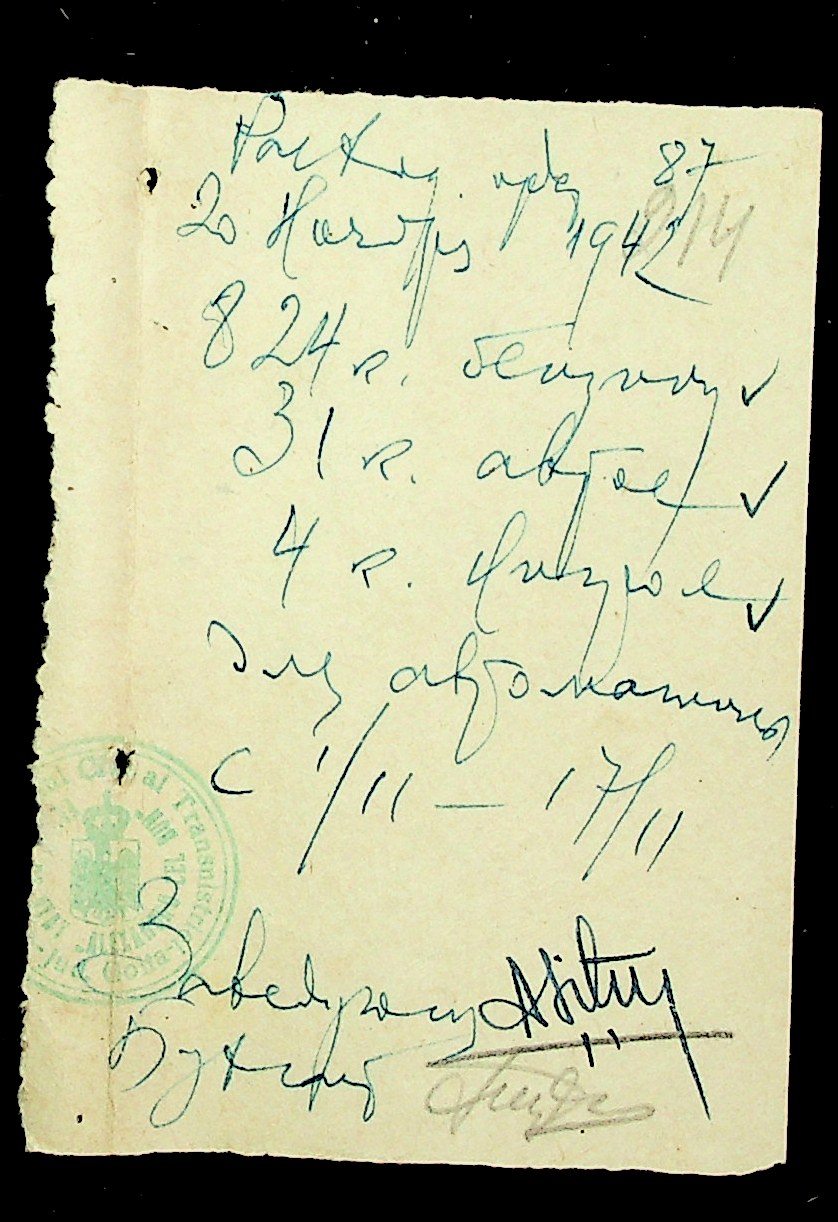 Расход. орд. 87
20 Ноября 1942
814
824 к. бензину
31 к. автол
4 к. Нигрол
Для автомашины
с 1/11 — 17/11
Заведующий
Бухгалт
al Transnistriei